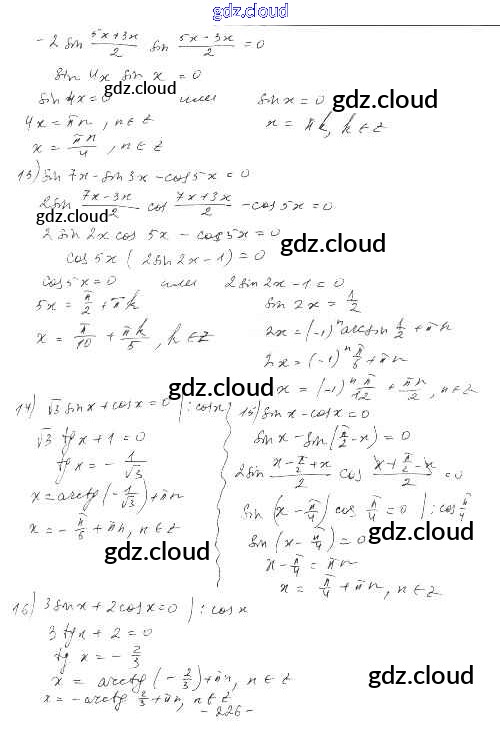 gdz.cloud
-2 sin (5x+3x)/2 sin (5x-3x)/2 = 0
sin 4x sin x = 0
gdz.cloud
sin 4x = 0 или sin x = 0
gdz.cloud
4x = πn, n ∈ Z x = πk, k ∈ Z
x = πn/4, n ∈ Z
13) sin 7x - sin 3x - cos 5x = 0
gdz.cloud
2 sin (7x-3x)/2 cos (7x+3x)/2 - cos 5x = 0
2 sin 2x cos 5x - cos 5x = 0
gdz.cloud
cos 5x (2 sin 2x - 1) = 0
cos 5x = 0 или 2 sin 2x - 1 = 0
5x = π/2 + πk sin 2x = 1/2
gdz.cloud
x = π/10 + πk/5, k ∈ Z 2x = (-1)^n arcsin 1/2 + πn
2x = (-1)^n π/6 + πn
gdz.cloud
x = (-1)^n π/12 + πn/2, n ∈ Z
14) √3 sin x + cos x = 0 |: cos x
√3 tg x + 1 = 0
tg x = -1/√3
x = arctg (-1/√3) + πn
x = -π/6 + πn, n ∈ Z
gdz.cloud
15) sin x - cos x = 0
sin x - sin (π/2 - x) = 0
gdz.cloud
2 sin (x - π/2 + x)/2 cos (x + π/2 - x)/2 = 0
sin (x - π/4) cos π/4 = 0 |: cos π/4
sin (x - π/4) = 0
gdz.cloud
x - π/4 = πn
x = π/4 + πn, n ∈ Z
16) 3 sin x + 2 cos x = 0 |: cos x
gdz.cloud
3 tg x + 2 = 0
tg x = -2/3
x = arctg (-2/3) + πn, n ∈ Z
gdz.cloud
gdz.cloud
x = -arctg 2/3 + πn, n ∈ Z
- 226 -